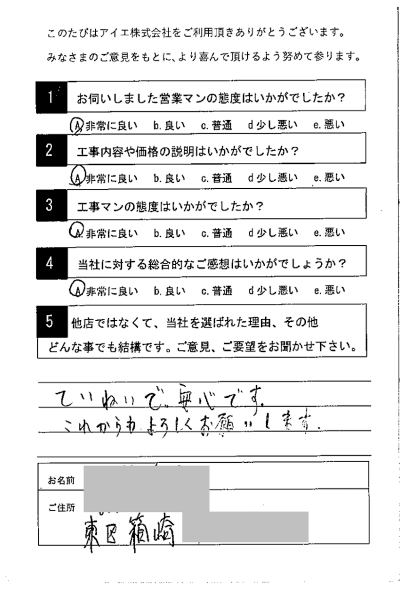 このたびはアイエ株式会社をご利用頂きありがとうございます。
みなさまのご意見をもとに、より喜んで頂けるよう努めて参ります。
1 お伺いしました営業マンの態度はいかがでしたか？
A 非常に良い b. 良い c. 普通 d 少し悪い e. 悪い
2 工事内容や価格の説明はいかがでしたか？
A 非常に良い b. 良い c. 普通 d 少し悪い e. 悪い
3 工事マンの態度はいかがでしたか？
A 非常に良い b. 良い c. 普通 d 少し悪い e. 悪い
4 当社に対する総合的なご感想はいかがでしょうか？
A 非常に良い b. 良い c. 普通 d 少し悪い e. 悪い
5 他店ではなくて、当社を選ばれた理由、その他
どんな事でも結構です。ご意見、ご要望をお聞かせ下さい。
ていねいで、安心です。
これからもよろしくお願いします。
お名前
ご住所
東区箱崎